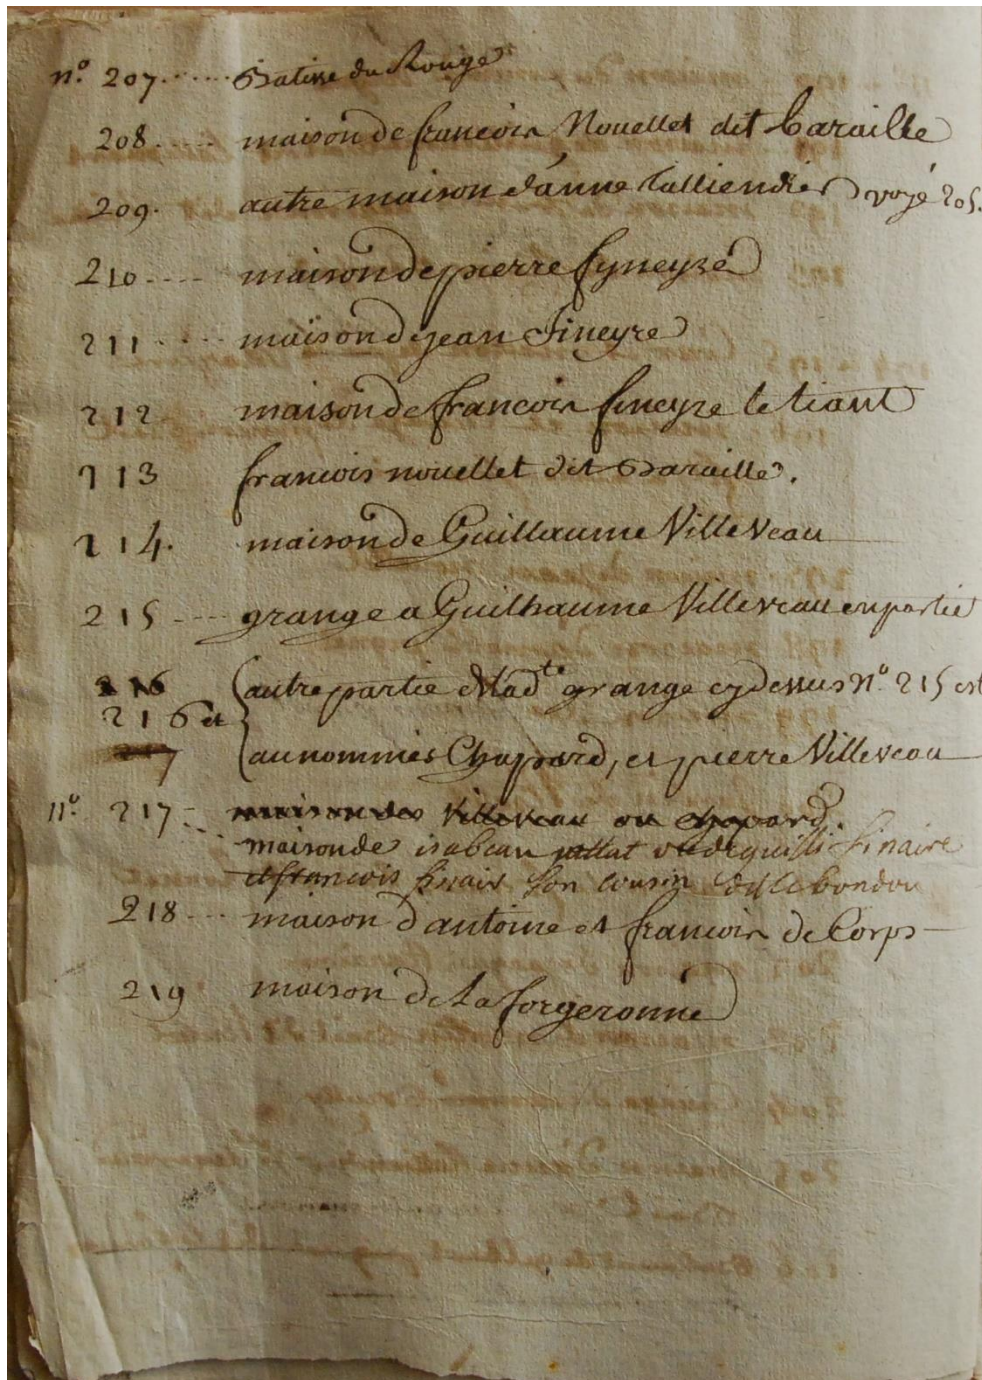 n.º 207 ...... Batisse du Rouge
208 ..... maison de francois Nouellet dit baraille
209. autre maison d'anne talliendier voyé 205.
210 .... maison de pierre fyneyre
211 .... maison de jean fineyre
212 maison de francois fineyre le tiant
213 francois nouellet dit Baraille.
214. maison de Guillaume Villeveau
215 ... grange a Guilhaume Villeveau en partie
216 autre partie de lad.te grange cy dessus n.º 215 est
216 et
217 au nommés Chapard, et pierre Villeveau
n.º 217 - maison des Villeveau ou chapard.
maison de isabeau finaire
et francois finair son cousin dit le bondou
218 ... maison d'antoine et francois de Corps
219 maison de la forgeronne